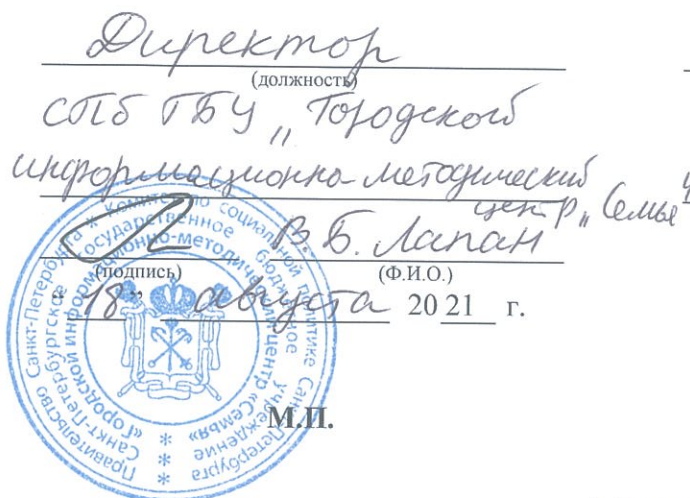 Директор
(должность)
СПб ГБУ „Городской
информационно-методический
центр „Семья"
В.Б. Лапан
(подпись) (Ф.И.О.)
“18” августа 2021 г.
М.П.
Правительство Санкт-Петербурга * Комитет по социальной политике Санкт-Петербурга
Санкт-Петербургское государственное бюджетное учреждение
«Городской информационно-методический центр «Семья»
* * *